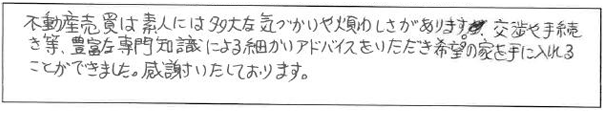 不動産売買は素人には多大な気づかいや煩わしさがあります。交渉や手続
き等、豊富な専門知識による細かいアドバイスをいただき希望の家を手に入れる
ことができました。感謝いたしております。